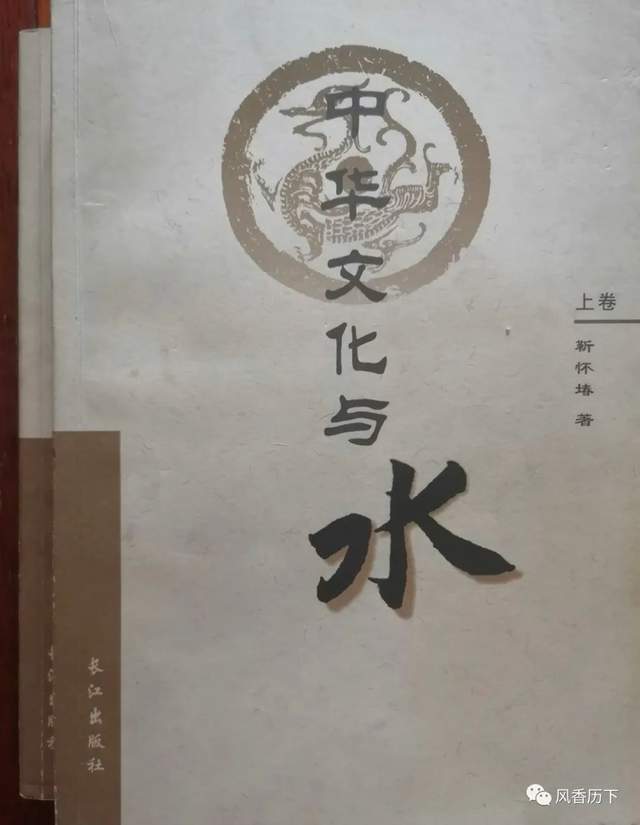 中华文化与水
上卷
靳怀堾 著
长江出版社
长江出版社
风香历下